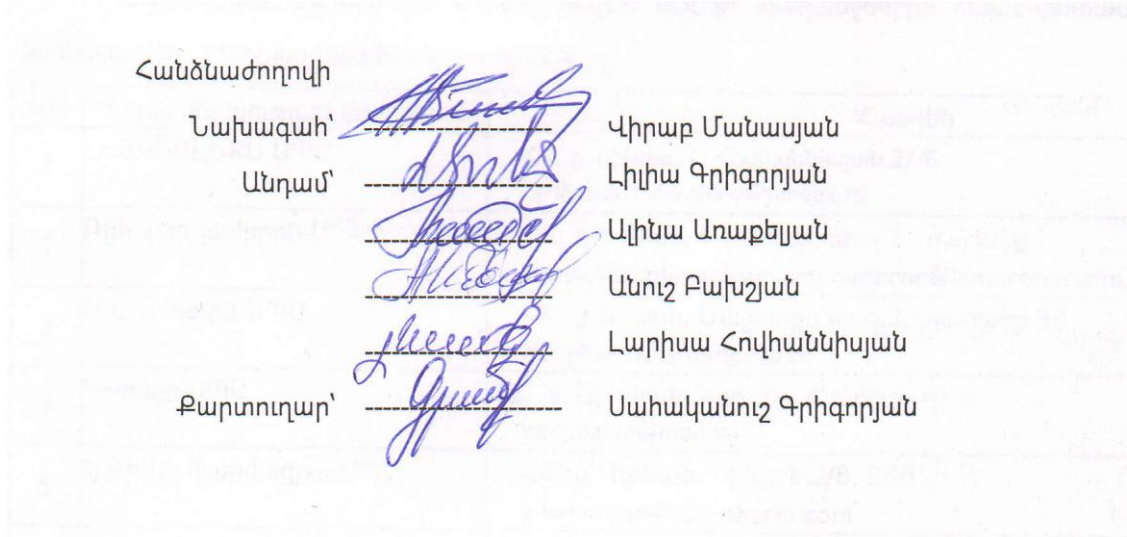 Հանձնաժողովի
Նախագահ՝ Վիրաբ Մանասյան
Անդամ՝ Լիլիա Գրիգորյան
Ալինա Առաքելյան
Անուշ Բախշյան
Լարիսա Հովհաննիսյան
Քարտուղար՝ Սահականուշ Գրիգորյան